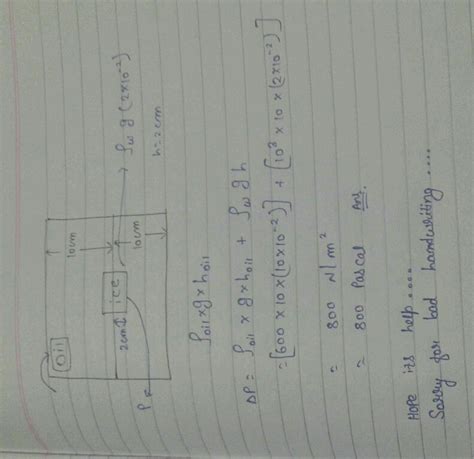 Oil
10cm
ice
2cm
10cm
ρw g (2×10⁻²)
h=2cm
ρoil × g × hoil
ΔP = ρoil × g × hoil + ρw g h
= [600 × 10 × (10×10⁻²)] + [10³ × 10 × (2×10⁻²)]
= 800 N/m²
= 800 Pascal Ans.
Hope its help ....
Sorry for bad handwriting ....